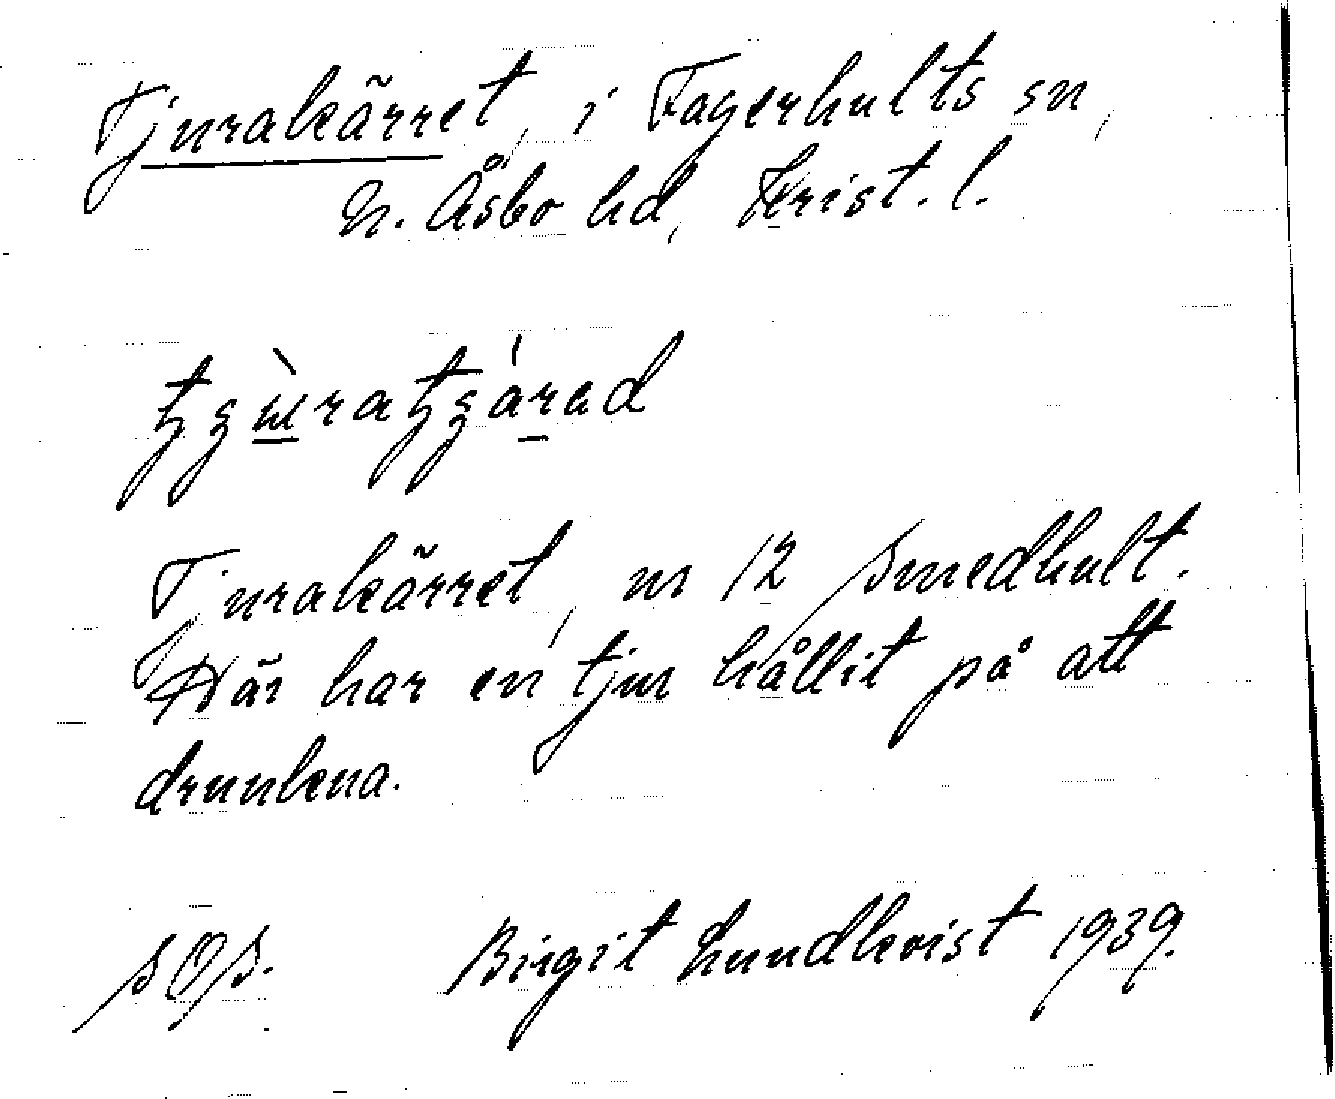 Tjurakärret, i Fagerhults sn,
N. Åsbo hd, Krist. l.
Tjurakärret, nr 12 Smedhult.
Här har en tjur hållit på att
drunkna.
SOS. Birgit Lundkvist 1939.